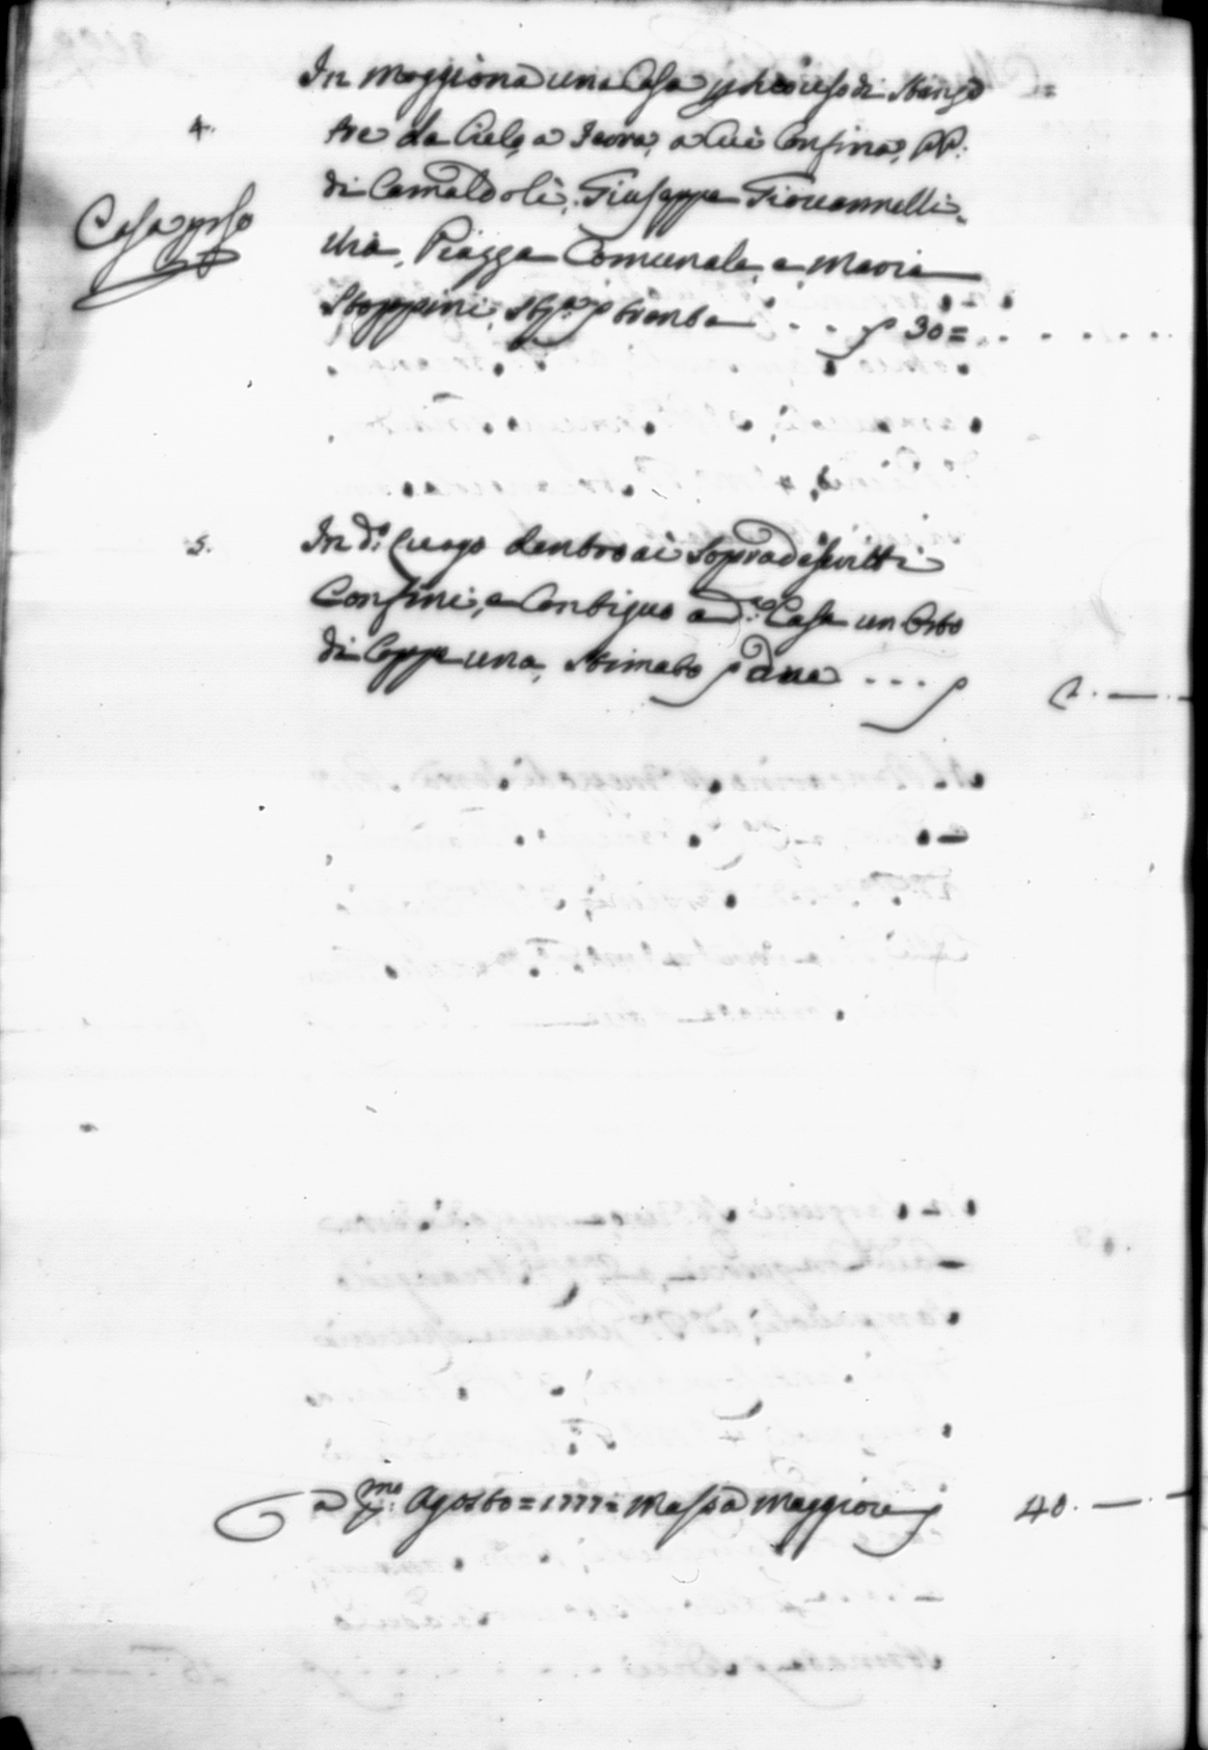 In Moggiona una Casa p suo uso di Stanze
4. tre da Cielo a Terra, a Cui Confina, PP.
di Camaldoli, Giuseppe Giovannelli,
Casa p uso
Via, Piazza Comunale, e Maria
Stoppini, stta p trenta . . . 30 = . . . . . .
5. In do: Luogo dentro ai Sopradescritti
Confini, e Contiguo a da: Casa un Orto
di Coppe una, Stimato p due . . . . 2. — . —
a pmo: Agosto = 1777 = Massa Maggiore 40. — . —